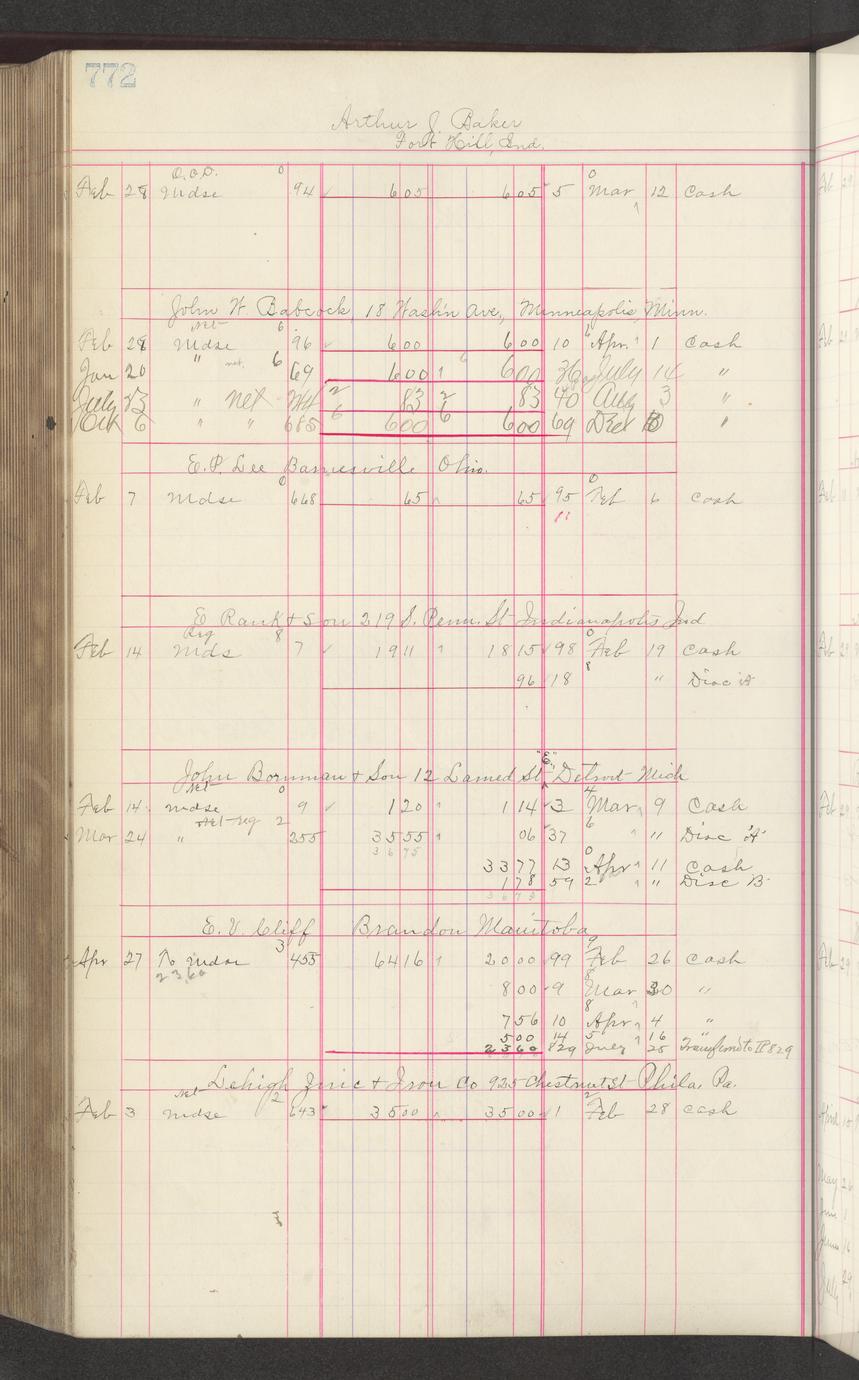 772
Arthur J. Baker
Fort Hill, Ind.
O.C.D. 0 0
Feb 28 Mdse 94 6 05 6 05 5 Mar 12 Cash
John W. Babcock, 18 Washn Ave, Minneapolis, Minn.
Net 6 6
Feb 28 Mdse 96 6 00 6 00 10 Apr. 1 Cash
Jan 20 " net 6 69 6 00 6 00 36 July 14 "
July 13 " net 2 83 2 83 40 Aug 3 "
Oct 6 " " 685 6 6 00 6 6 00 69 Dec 10 "
E. P. Lee Barnesville Ohio.
0 0
Feb 7 Mdse 668 65 65 95 Feb 6 Cash
11
E Rank & Son 219 S. Penn. St Indianapolis Ind
Reg 8 0
Feb 14 Mds 7 19 11 18 15 98 Feb 19 Cash
8
96 18 " Disc A
John Bornman & Son 12 Larned St "E" Detroit Mich
Net 0 4
Feb 14 Mdse 9 1 20 1 14 3 Mar 9 Cash
Net reg 2 6
Mar 24 " 255 35 55 06 37 " Disc "A"
36 75 0
33 77 13 Apr 11 Cash
1 78 59 2 " Disc B
36 75
E. V. Cliff Brandon Manitoba
3 9
Apr 27 To Mdse 455 64 16 20 00 99 Feb 26 Cash
23,60 8
8 00 9 Mar 30 "
8
7 56 10 Apr 4 "
5 00 14 5 16 "
23 60 829 July 25 Transferred to P 829
Lehigh Zinc & Iron Co 925 Chestnut St Phila. Pa.
Net 2 2
Feb 3 Mdse 643 35 00 35 00 1 Feb 28 Cash